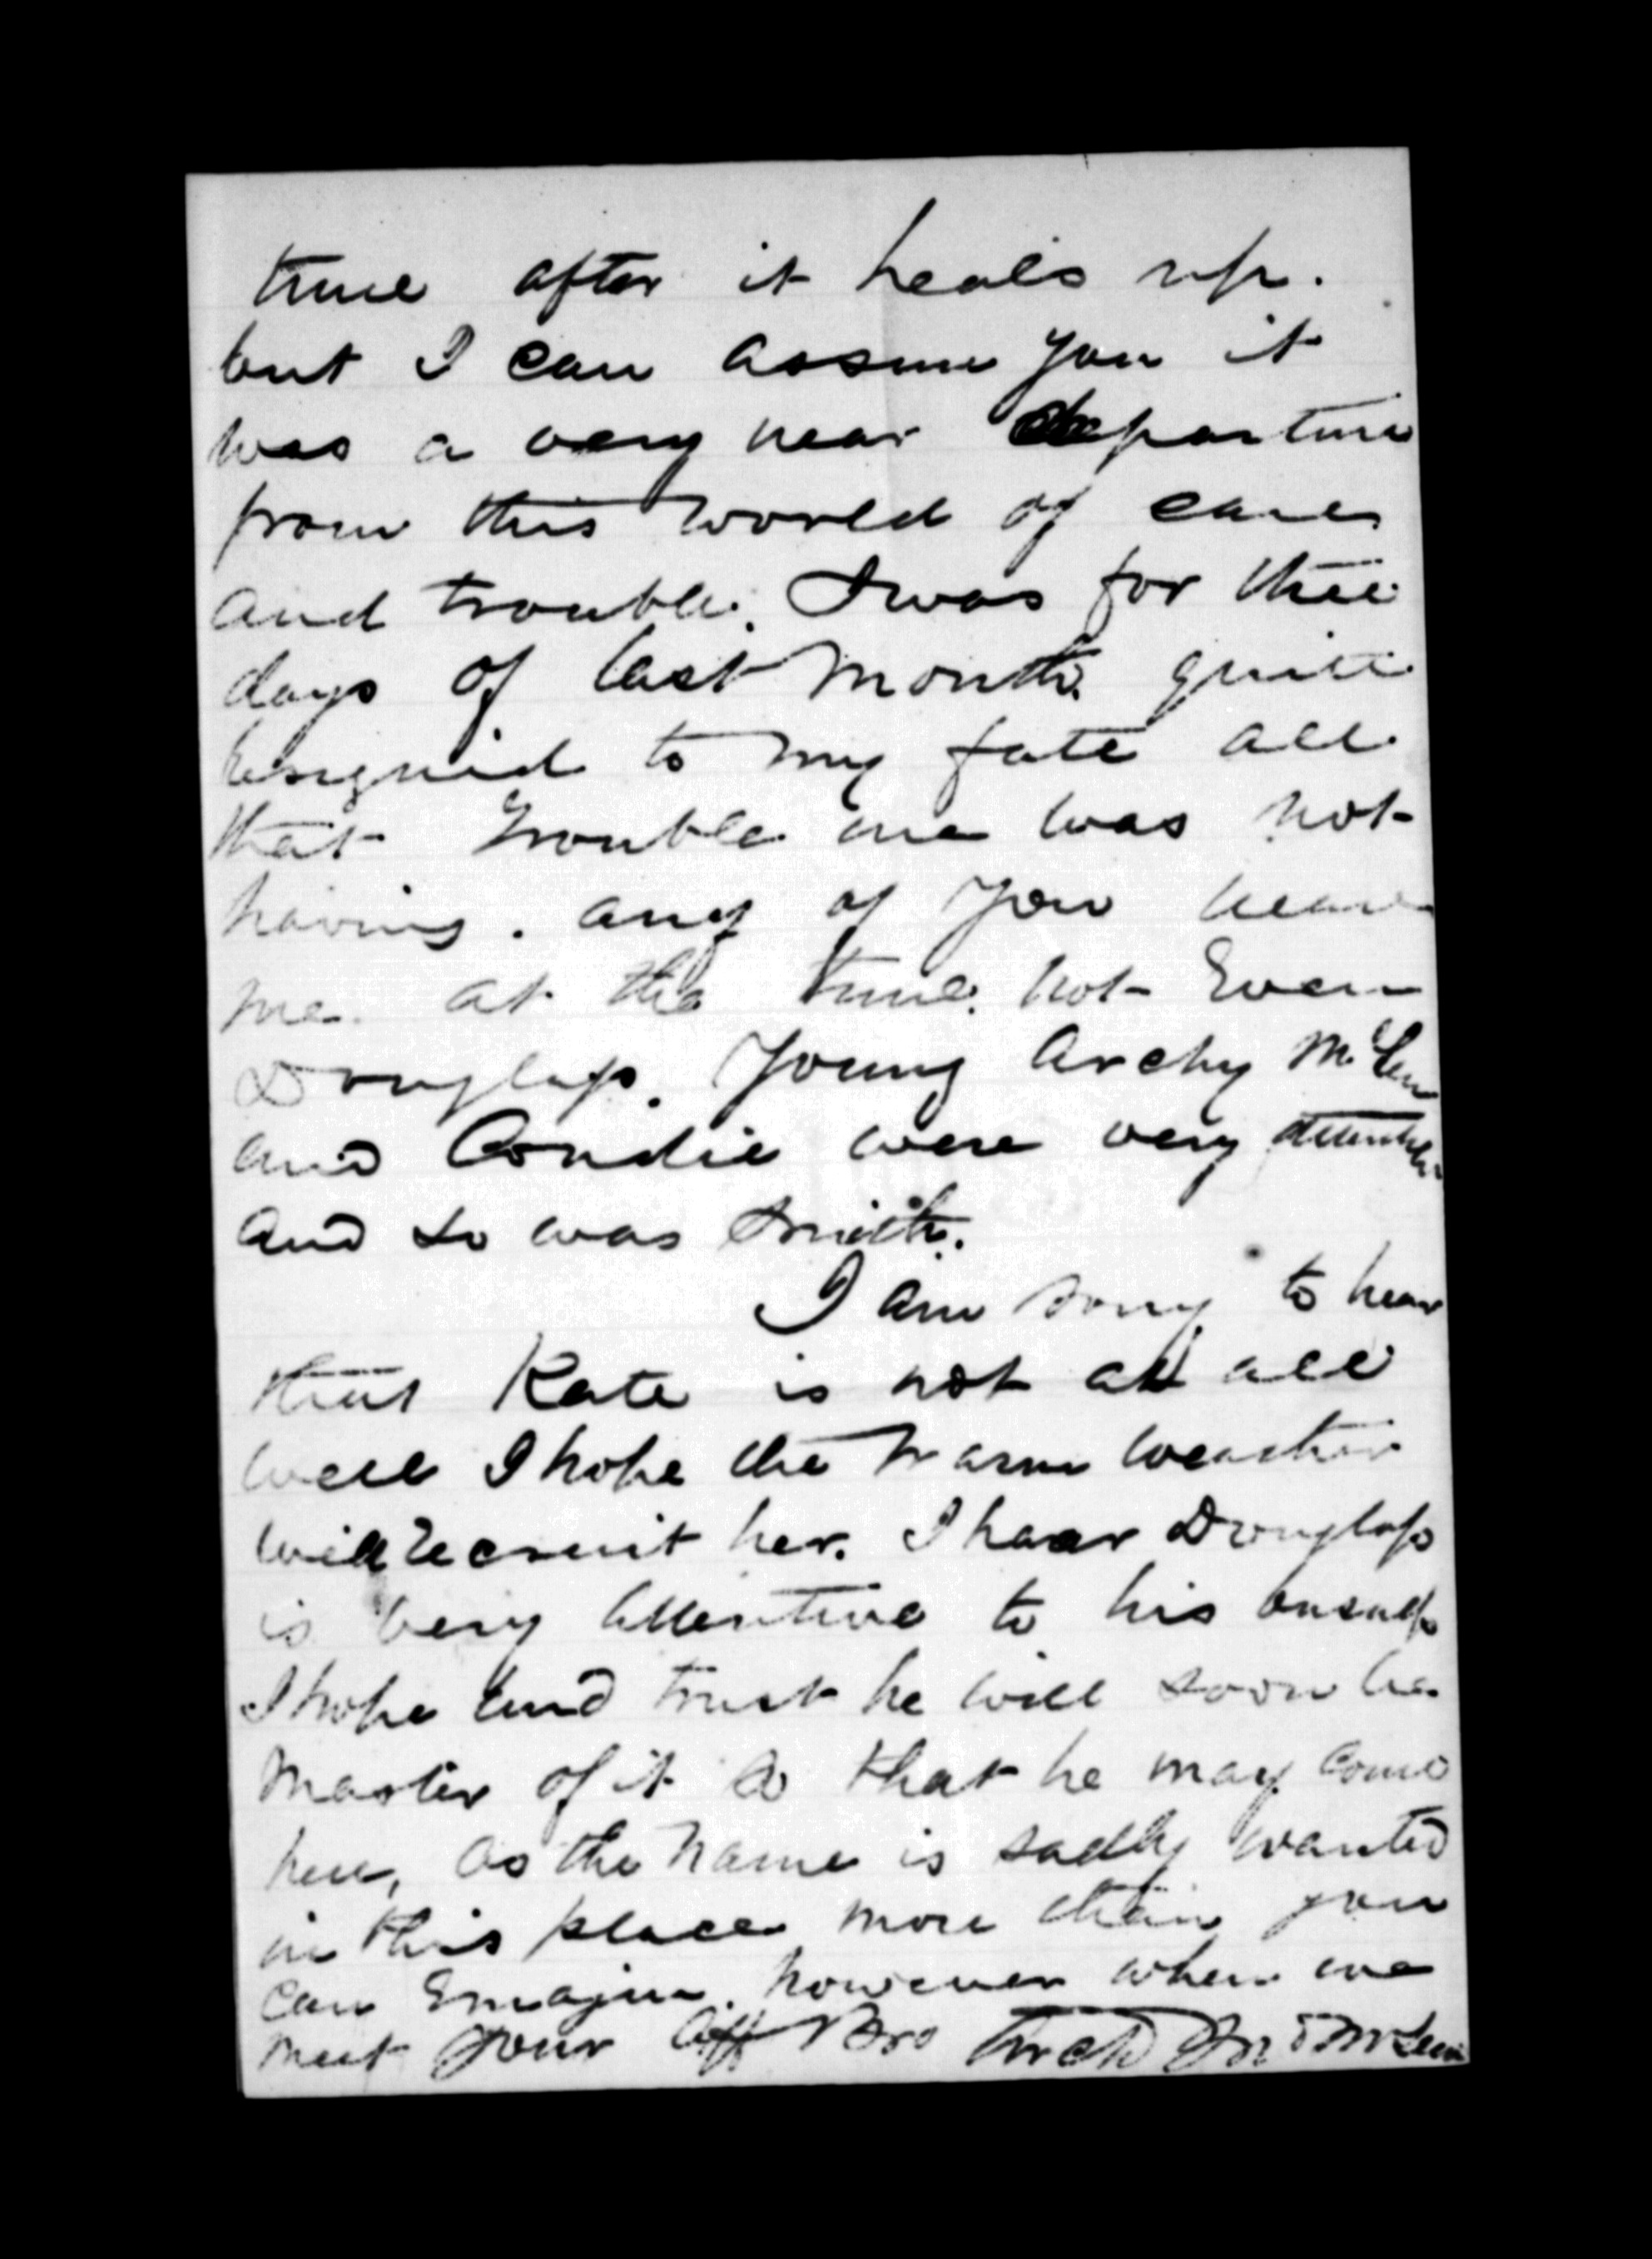 time after it heals up.
but I can assure you it
was a very near departure
from this world of cares
and trouble. I was for three
days of last month quite
resigned to my fate all
that trouble me was not
having. any of you near
me at the time. not Even
Douglass. Young Archy McLean
and Condie were very attentive
and so was Smith.
I am sorry to hear
that Kate is not at all
well I hope the warm weather
will recruit her. I hear Douglass
is very attentive to his business
I hope and trust he will soon be
Master of it so that he may come
here, as the name is sadly wanted
in this place more than you
can Emagine. however when we
meet your Aff Bro Archd